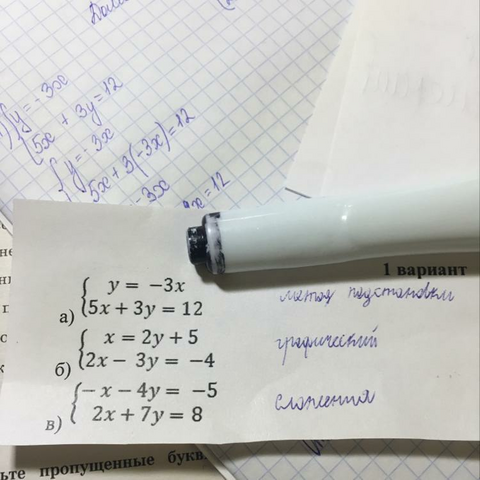 { y = -3x
5x + 3y = 12
{ y = -3x
5x + 3(-3x) = 12
-3x
= 12
1 вариант
а) { y = −3x
5x + 3y = 12
метод подстановки
б) { x = 2y + 5
2x − 3y = −4
графический
в) { − x − 4y = −5
2x + 7y = 8
сложения
ьте пропущенные букв